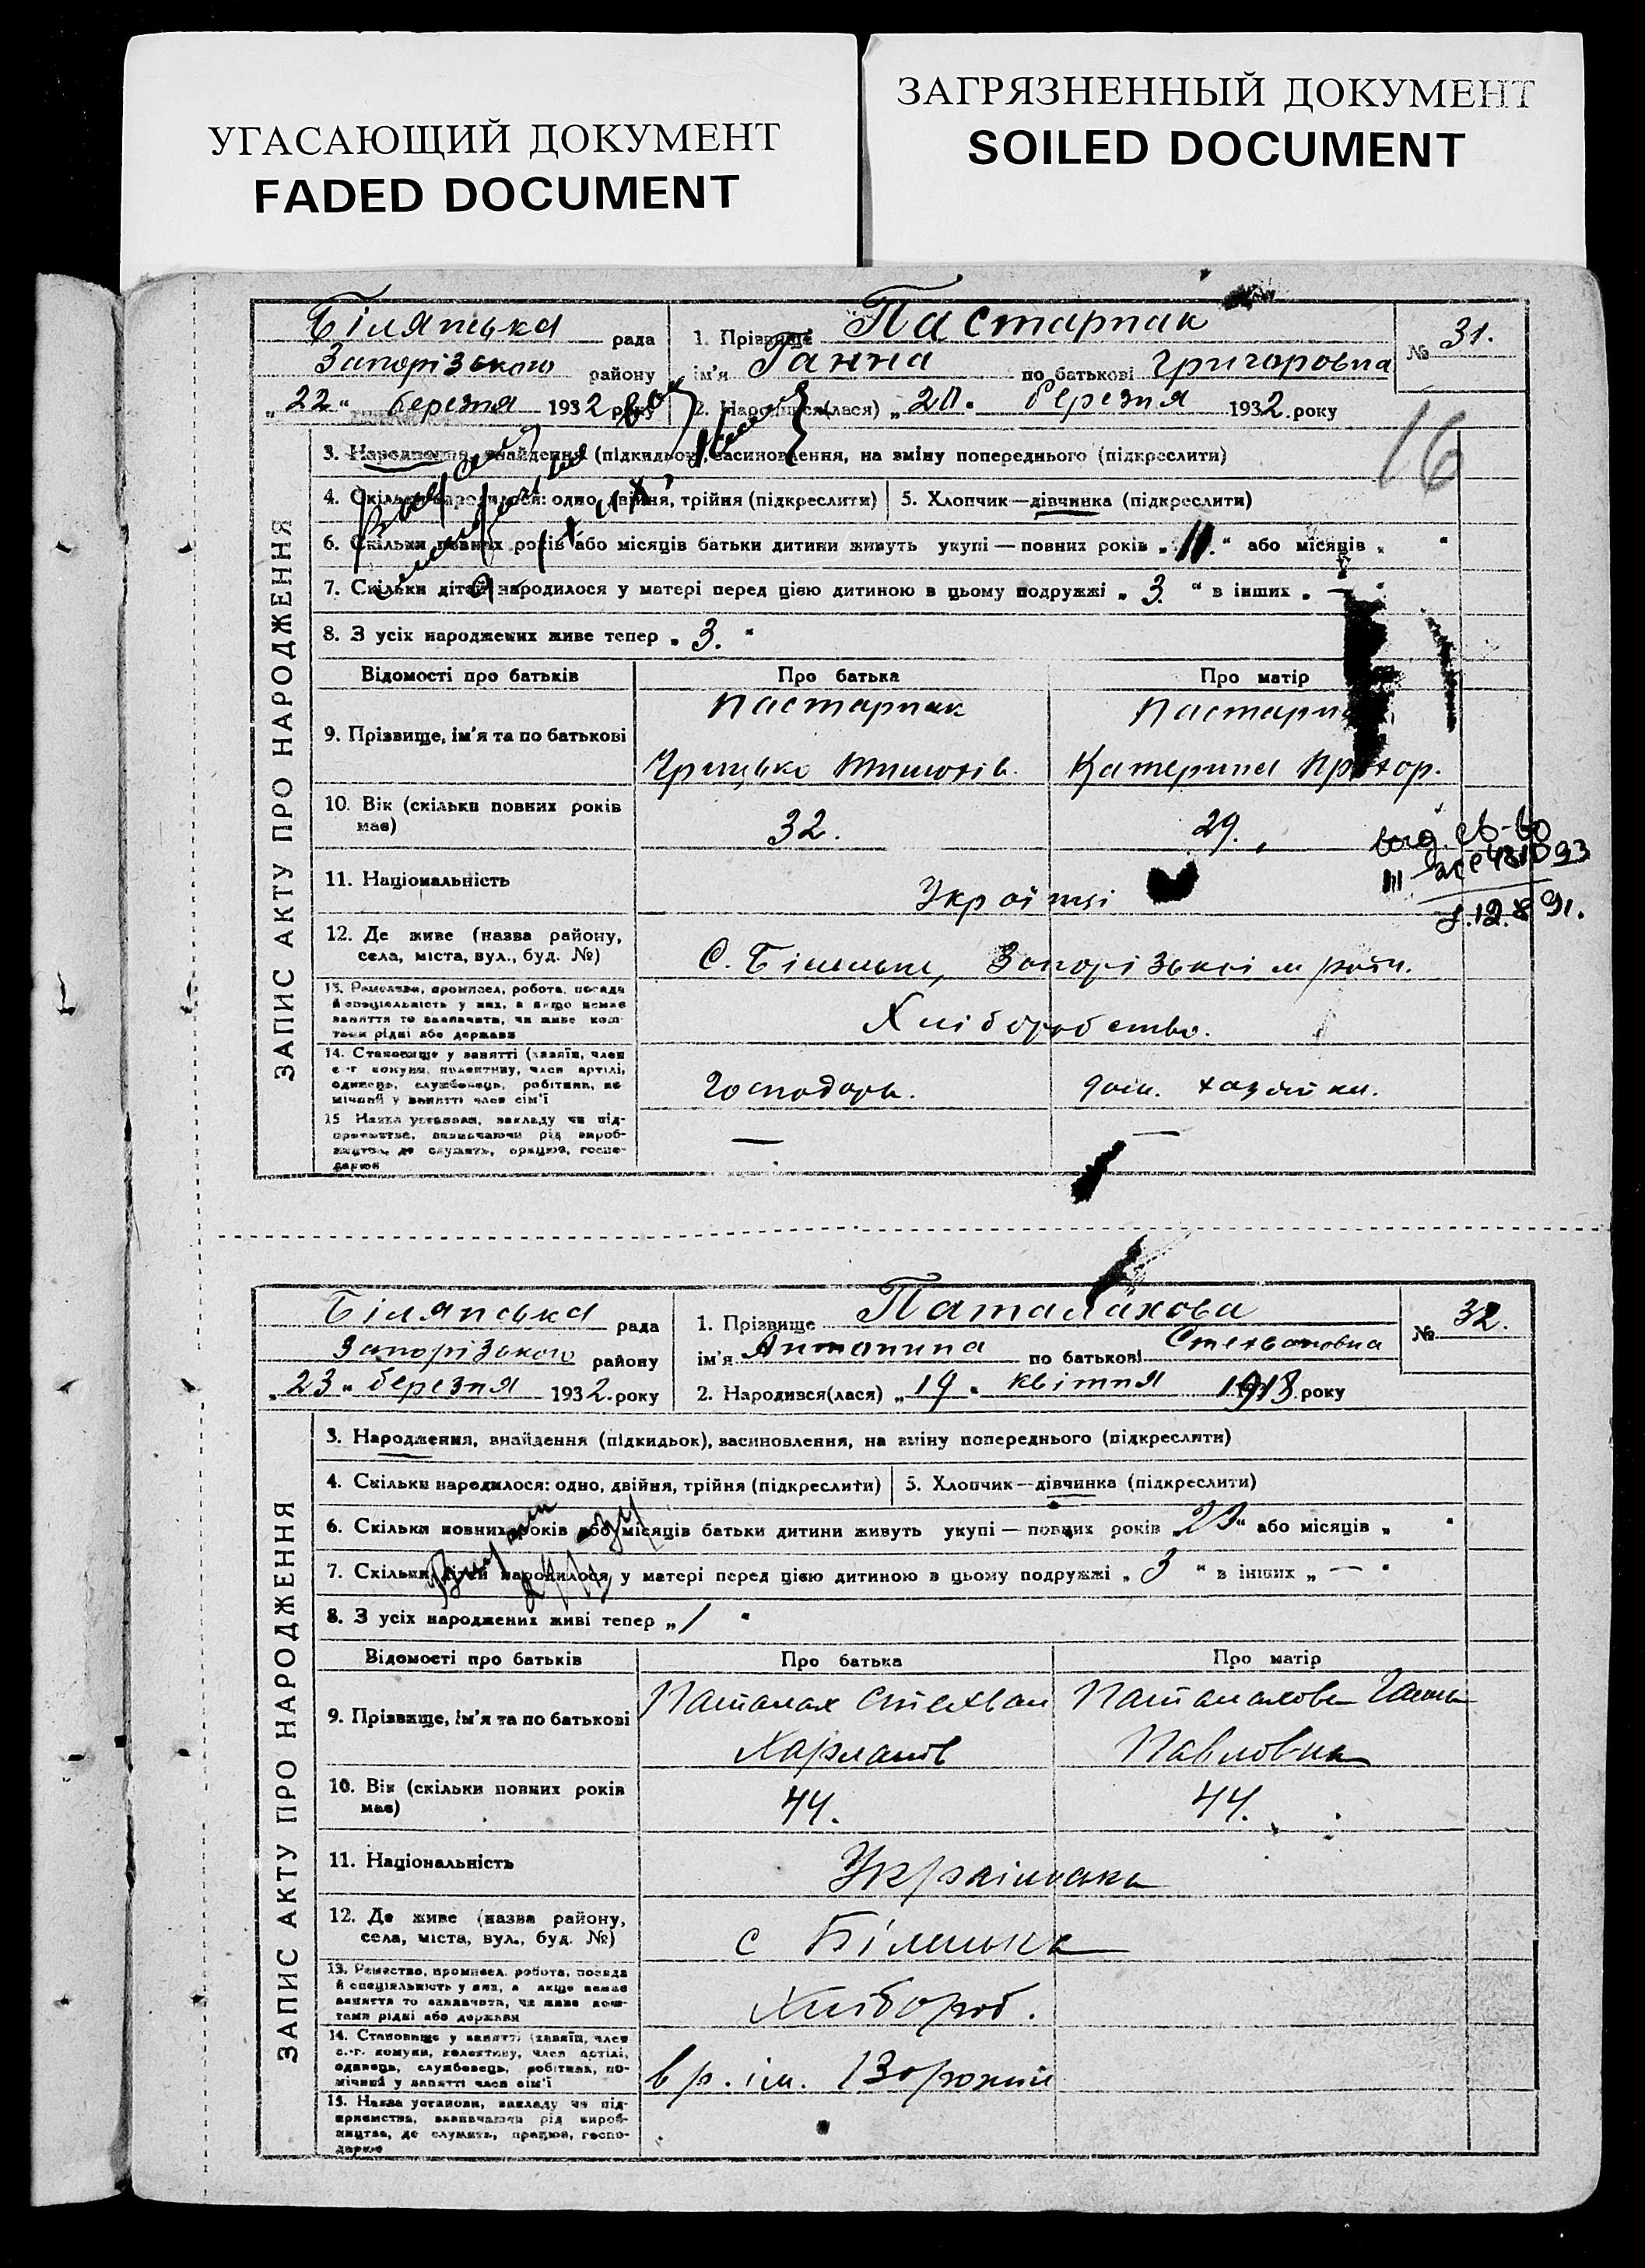 УГАСАЮЩИЙ ДОКУМЕНТ
FADED DOCUMENT
ЗАГРЯЗНЕННЫЙ ДОКУМЕНТ
SOILED DOCUMENT
ЗАПИС АКТУ ПРО НАРОДЖЕННЯ
Білянська рада
Запорізького району
„22“ березня 1932 року
1. Прізвище Пастарнак
ім'я Ганна по батькові Григоровна
2. Народився(лася) „20“ березня 1932 року
№ 31.
16
3. Народження, знайдення (підкидьок), засиновлення, на зміну попереднього (підкреслити)
4. Скільки народилося: одно, двійня, трійня (підкреслити)
5. Хлопчик—дівчинка (підкреслити)
6. Скільки повних років або місяців батьки дитини живуть укупі — повних років „11.“ або місяців „ “
7. Скільки дітей народилося у матері перед цією дитиною в цьому подружжі „3.“ в інших „—“
8. З усіх народжених живе тепер „3.“
Відомості про батьків
Про батька
Про матір
9. Прізвище, ім'я та по батькові
Пастарнак
Грицько
Катерина
10. Вік (скільки повних років має)
32.
29.
11. Національність
12. Де живе (назва району, села, міста, вул., буд. №)
С.
13. Ремество, промисел, робота, посада й спеціяльність у них, а якщо немає заняття то зазначити, чи живе коштами рідні або держави
Хліборобство.
14. Становище у занятті (хазяїн, член с.-г. комуни, колективу, член артілі, одинець, службовець, робітник, помічний у занятті член сім'ї
Господарь.
дом. хазяйка.
15. Назва установи, закладу чи підприємства, зазначаючи рід виробництва, де служить, працює, господарює
—
—
ЗАПИС АКТУ ПРО НАРОДЖЕННЯ
Білянська рада
Запорізького району
„23“ березня 1932 року
1. Прізвище Паталахова
ім'я Антонина по батькові Стехвановна
2. Народився(лася) „19“ квітня 1918 року
№ 32.
3. Народження, знайдення (підкидьок), засиновлення, на зміну попереднього (підкреслити)
4. Скільки народилося: одно, двійня, трійня (підкреслити)
5. Хлопчик—дівчинка (підкреслити)
6. Скільки повних років або місяців батьки дитини живуть укупі — повних років або місяців „ “
7. Скільки дітей народилося у матері перед цією дитиною в цьому подружжі „3“ в інших „—“
8. З усіх народжених живі тепер „1“
Відомості про батьків
Про батька
Про матір
9. Прізвище, ім'я та по батькові
Паталах Стехван
Паталахова Ганна
Павловна
10. Вік (скільки повних років має)
44.
44.
11. Національність
12. Де живе (назва району, села, міста, вул., буд. №)
с
13. Ремество, промисел, робота, посада й спеціяльність у них, а якщо немає заняття то зазначити, чи живе коштами рідні або держави
Хлібороб.
14. Становище у занятті (хазяїн, член с.-г. комуни, колективу, член артілі, одинець, службовець, робітник, помічний у занятті член сім'ї
15. Назва установи, закладу чи підприємства, зазначаючи рід виробництва, де служить, працює, господарює